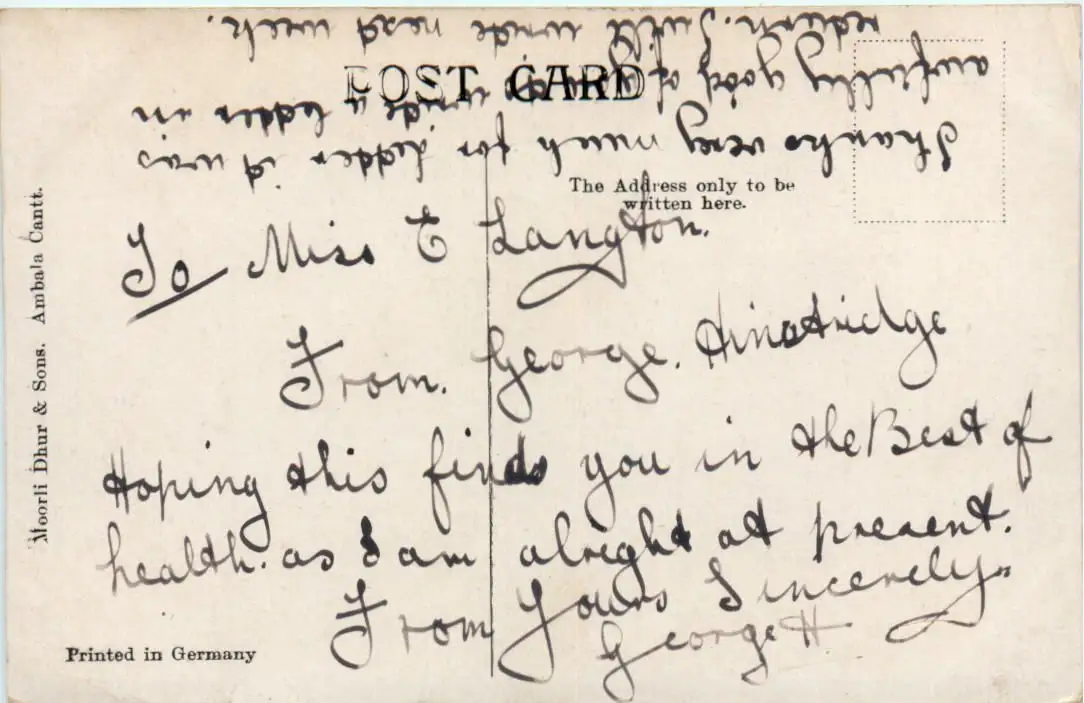 POST CARD
The Address only to be
written here.
To Miss E Langton.
From. George. Hinstridge
Hoping this finds you in the Best of
health. as I am alright at present.
From Yours Sincerely,,
George H
Thanks very much for letter it was
awfully good of you to write a letter in
return. I will write next week.
Moorli Dhur & Sons. Ambala Cantt.
Printed in Germany